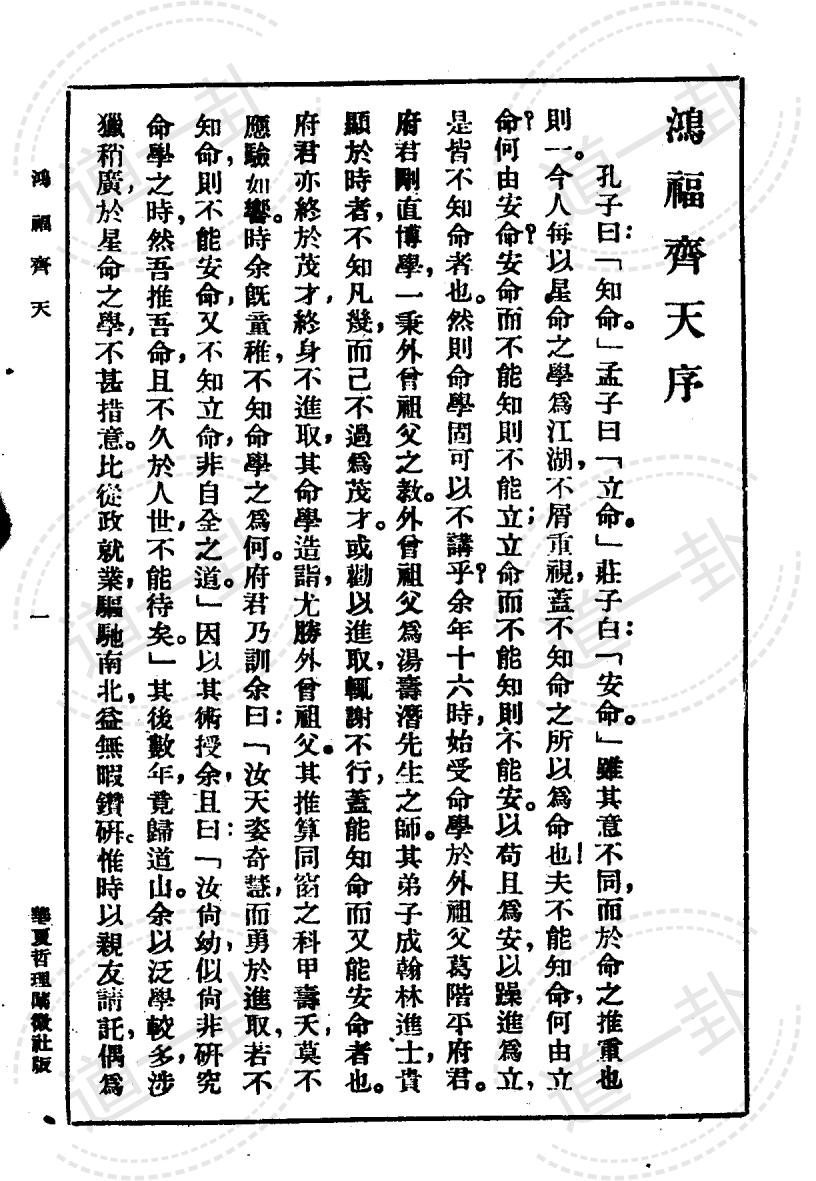 鴻福齊天序
孔子曰：「知命。」孟子曰「立命。」莊子白：「安命。」雖其意不同，而於命之推重也
則一。今人每以星命之學爲江湖，不屑重視，蓋不知命之所以爲命也！夫不能知命，何由立
命？何由安命？安命而不能知則不能立；立命而不能知則不能安。以苟且爲安，以躁進爲立，
是皆不知命者也。然則命學固可以不講乎？余年十六時，始受命學於外祖父葛階平府君。
府君剛直博學，一秉外曾祖父之教。外曾祖父爲湯壽潛先生之師。其弟子成翰林進士，貴
顯於時者，不知凡幾，而己不過爲茂才。或勸以進取，輒謝不行，蓋能知命而又能安命者也。
府君亦終於茂才，終身不進取，其命學造詣，尤勝外曾祖父。其推算同窗之科甲壽夭，莫不
應驗如響。時余旣童稚，不知命學之爲何。府君乃訓余曰：「汝天姿奇慧，而勇於進取，若不
知命，則不能安命，又不知立命，非自全之道。」因以其術授余，且曰：「汝尙幼，似尙非硏究
命學之時，然吾推吾命，且不久於人世，不能待矣。」其後數年，竟歸道山。余以泛學較多，涉
獵稍廣，於星命之學，不甚措意。比從政就業，驅馳南北，益無暇鑽硏。惟時以親友請託，偶爲
鴻福齊天
一
華夏哲理闡徵社版
道一卦
道一卦
道一卦
道一卦
道一卦
道一卦